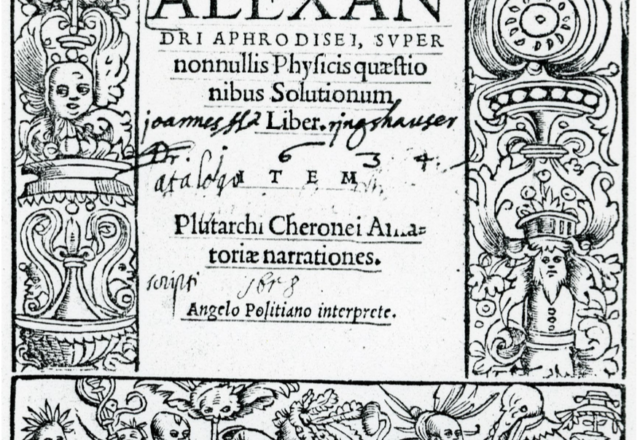 ALEXAN
DRI APHRODISEI, SVPER
nonnullis Physicis quæstio
nibus Solutionum
joannes Liber. ringshauser
6 3 4.
ITEM
Plutarchi Cheronei Ama=
toriæ narrationes.
scripti
Angelo Politiano interprete.